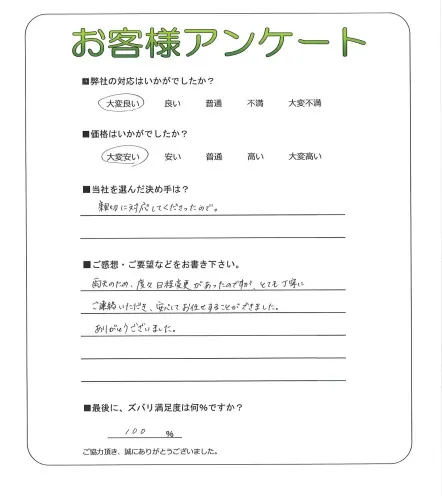 お客様アンケート
■弊社の対応はいかがでしたか？
大変良い 良い 普通 不満 大変不満
■価格はいかがでしたか？
大変安い 安い 普通 高い 大変高い
■当社を選んだ決め手は？
親切に対応してくださったので。
■ご感想・ご要望などをお書き下さい。
雨天のため、度々日程変更があったのですが、とても丁寧に
ご連絡いただき、安心してお任せすることができました。
ありがとうございました。
■最後に、ズバリ満足度は何%ですか？
100 %
ご協力頂き、誠にありがとうございました。